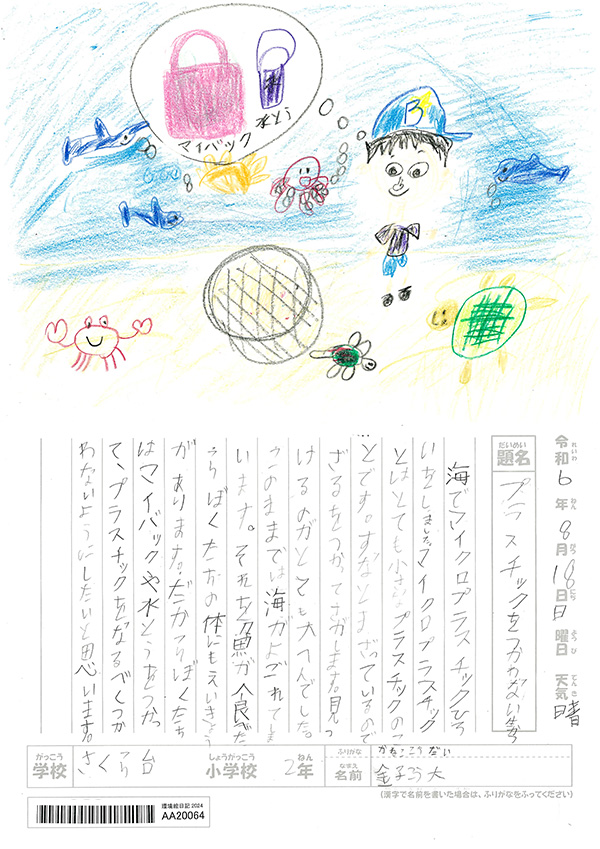 マイバック
水とう
B
れいわ ねん がつ にち ようび てんき
令和6年8月18日日曜日 天気 晴
だいめい
題名 プラスチックをつかわない生活
海でマイクロプラスチックひろ
いをしました。マイクロプラスチック
とはとても小さなプラスチックのこ
とです。すなとまざっているので
ざるをつかってさがします。見つ
けるのがとても大へんでした。
このままでは海がよごれてしま
います。それを魚が食べた
らぼくたちの体にもえいきょう
があります。だからぼくたち
はマイバックや水とうをつかっ
て、プラスチックをなるべくつか
わないようにしたいと思います。
がっこう しょうがっこう ねん ふりがな かねこ こうだい
学校 さくら台 小学校 2年 なまえ 名前 金子こう大
(漢字で名前を書いた場合は、ふりがなをふってください)
環境絵日記2024
AA20064